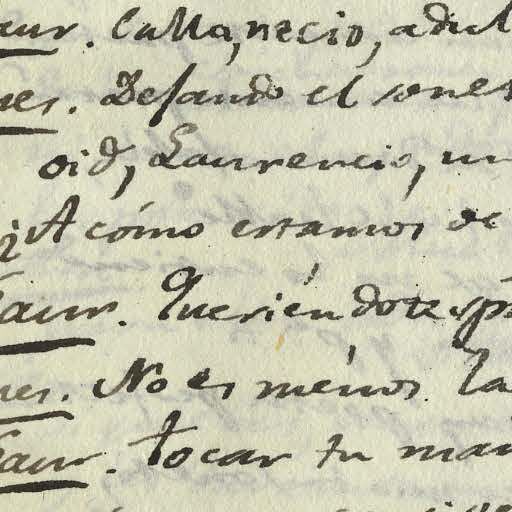 aur. Calla, necio, adul
nes. Dejando el sones
oid, Laurencio, un
¿A cómo estamos de
Laur. Queriéndote
nes. No es ménos. la
Laur. tocar tu man